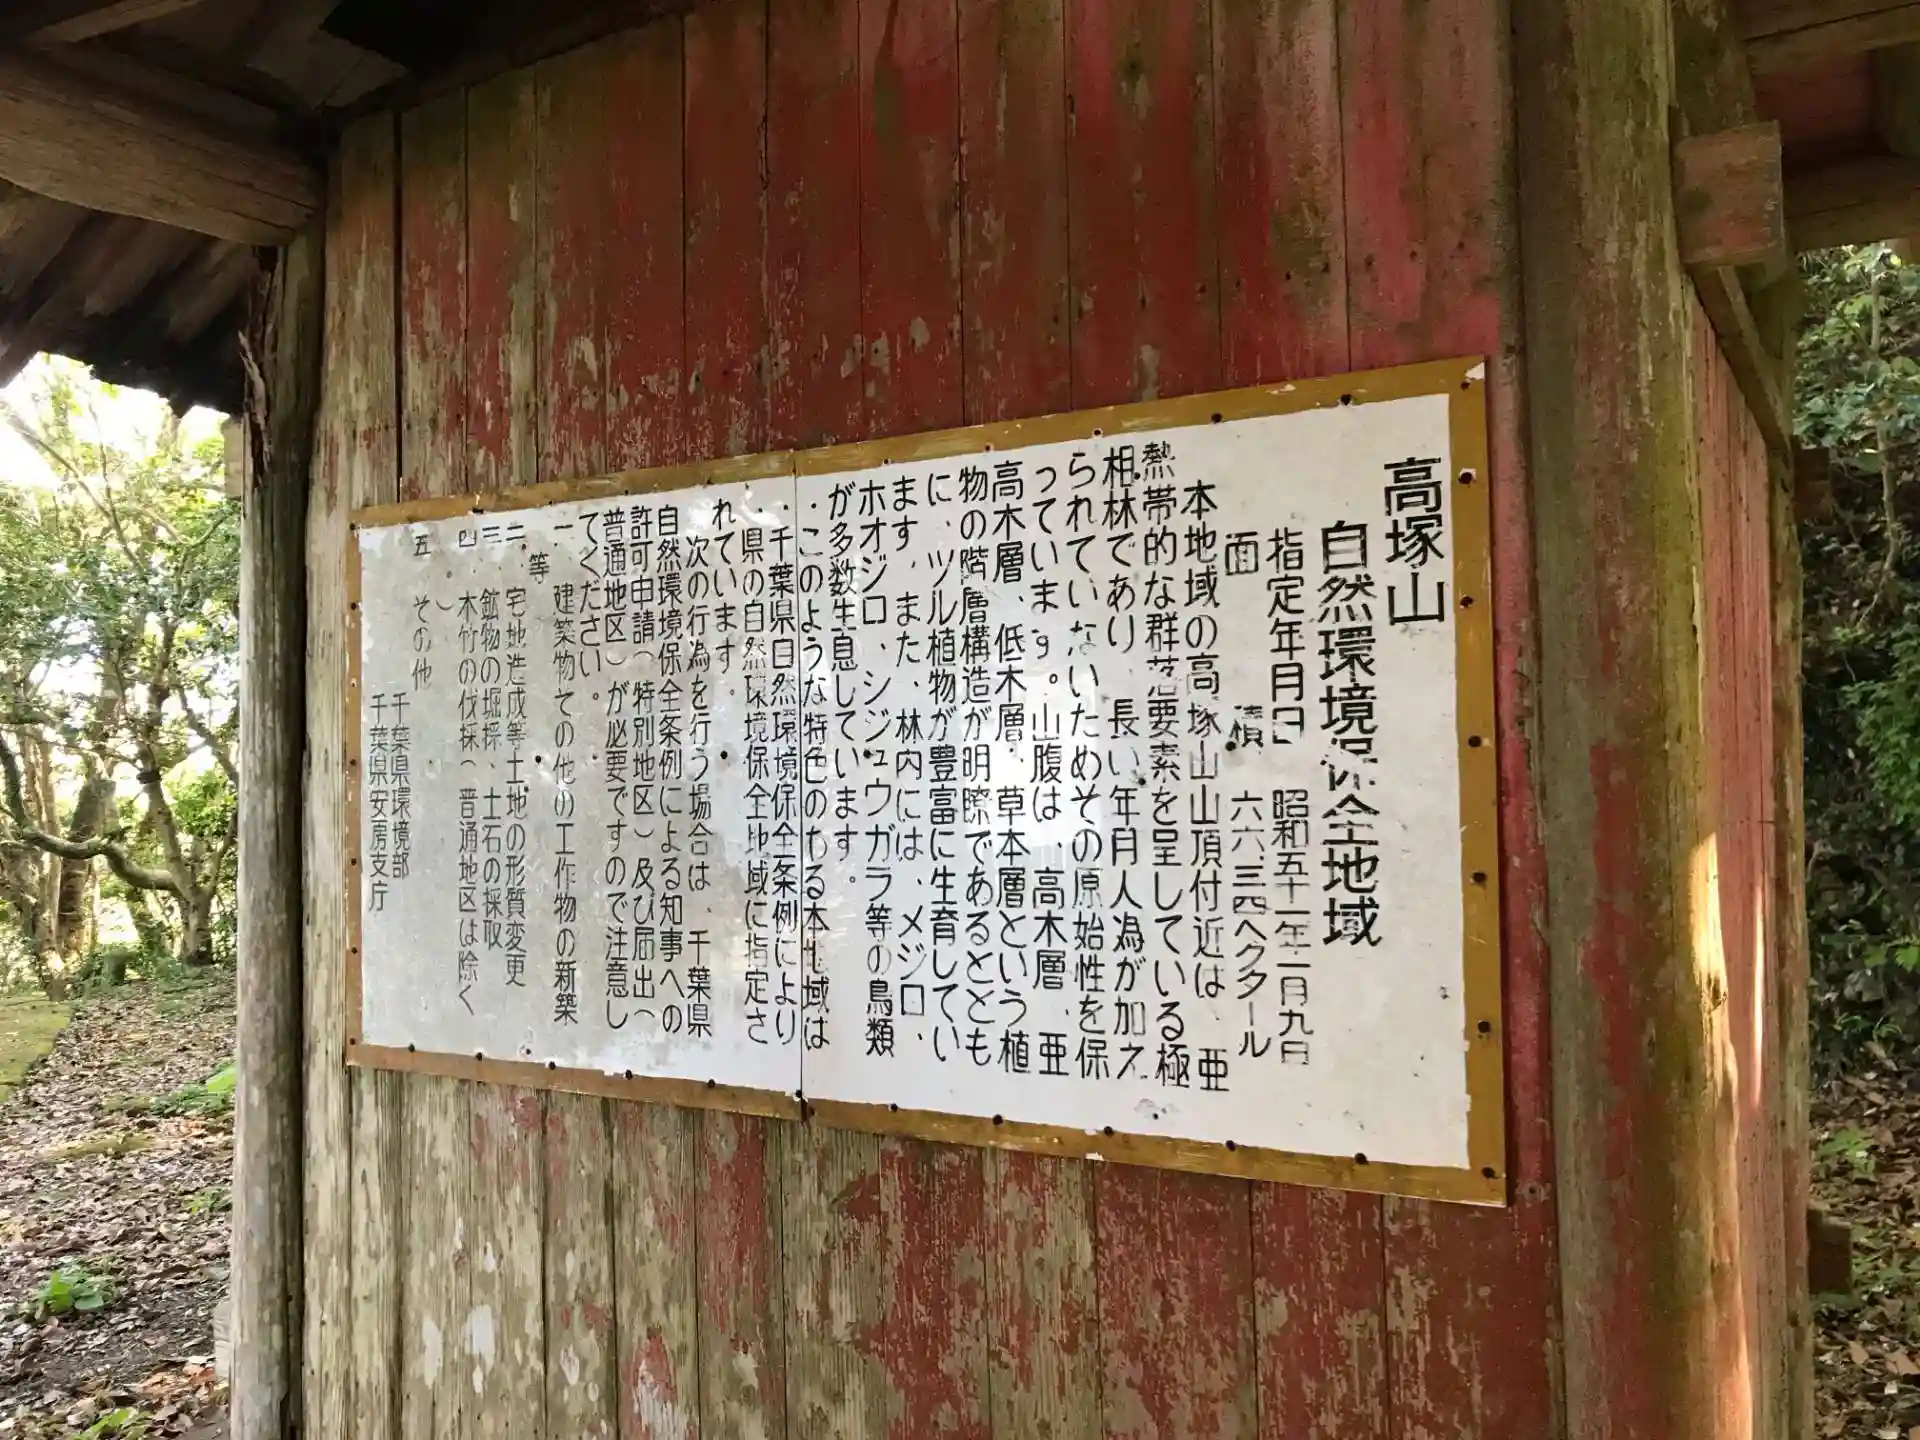 高塚山
自然環境保全地域
指定年月日 昭和五十一年二月九日
面 積 六六.三四ヘクタール
本地域の高塚山山頂付近は、亜
熱帯的な群落要素を呈している極
相林であり、長い年月人為が加え
られていないためその原始性を保
っています。山腹は、高木層、亜
高木層、低木層、草本層という植
物の階層構造が明瞭であるととも
に、ツル植物が豊富に生育してい
ます。また、林内には、メジロ、
ホオジロ、シジュウガラ等の鳥類
が多数生息しています。
・このような特色のある本地域は
・千葉県自然環境保全条例により
・県の自然環境保全地域に指定さ
れています。
次の行為を行う場合は、千葉県
自然環境保全条例による知事への
許可申請(特別地区)及び届出(
普通地区)が必要ですので注意し
てください。
一. 建築物その他の工作物の新築
等
二. 宅地造成等土地の形質変更
三. 鉱物の堀採、土石の採取
四. 木竹の伐採(普通地区は除く
)。
五 その他
千葉県環境部
千葉県安房支庁